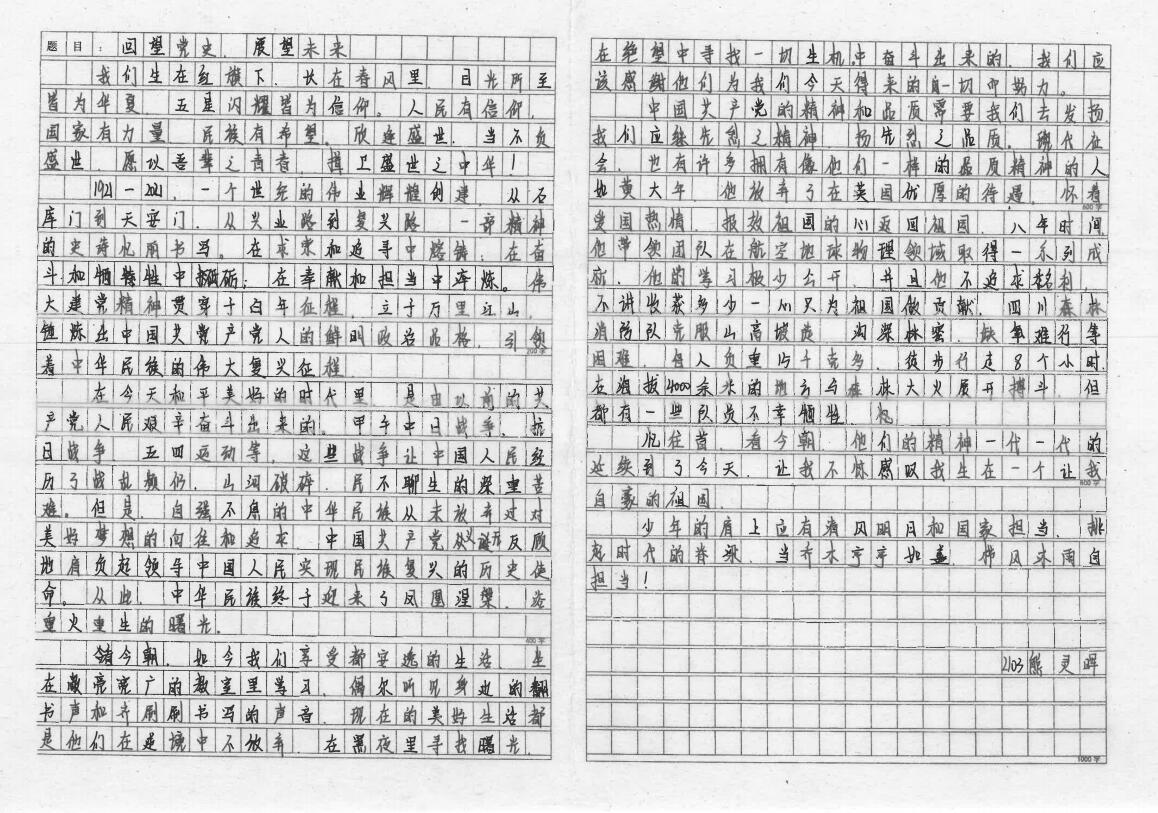 题目：回望党史，展望未来
我们生在红旗下，长在春风里，目光所至
皆为华夏，五星闪耀皆为信仰。人民有信仰，
国家有力量，民族有希望。欣逢盛世，当不负
盛世，愿以吾辈之青春，捍卫盛世之中华！
1921—2021，一个世纪的伟业辉煌创建，从石
库门到天安门，从兴业路到复兴路，一部精神
的史诗忆丽书写。在求索和追寻中熔铸，在奋
斗和牺牲中砥砺；在奉献和担当中淬炼。伟
大建党精神贯穿于百年征程，立于万里江山，
锤炼出中国共产党人的鲜明政治品格，引领
200字
着中华民族的伟大复兴征程。
在今天和平美好的时代里，是由以前的共
产党人民艰辛奋斗出来的。甲午中日战争，抗
日战争，五四运动等，这些战争让中国人民经
历了战乱频仍，山河破碎，民不聊生的深重苦
难。但是，自强不息的中华民族从未放弃过对
美好梦想的向往和追求，中国共产党义无反顾
地肩负起领导中国人民实现民族复兴的历史使
命。从此，中华民族终于迎来了凤凰涅槃，浴
重火重生的曙光。
400字
看今朝，如今我们享受都安逸的生活，坐
在敞亮宽广的教室里学习，偶尔听见身边的翻
书声和齐刷刷书写的声音，现在的美好生活都
是他们在逆境中不放弃，在黑夜里寻找曙光，
在绝望中寻找一切生机中奋斗出来的，我们应
该感谢他们为我们今天得来的一切而努力。
中国共产党的精神和品质需要我们去发扬，
我们应继先烈之精神，扬先烈之品质。现代社
会，也有许多拥有像他们一样的品质精神的人
如黄大年，他放弃了在英国优厚的待遇，怀着
600字
爱国热情，报效祖国的心返回祖国，八年时间
他带领团队在航空地球物理领域取得一系列成
就，他的学习极少公开，并且他不追求名利，
不讲收获多少一心只为祖国做贡献，四川森林
消防队克服山高坡陡，沟深林密，缺氧难行等
困难，每人负重15千克多，徒步行走8个小时，
在海拔4000余米的地方与森林大火展开搏斗，但
都有一些队员不幸牺牲。
忆往昔，看今朝，他们的精神一代一代的
延续到了今天，让我不惊感叹我生在一个让我
800字
自豪的祖国。
少年的肩上应有清风明月和国家担当，挑
起时代的脊梁，当乔木亭亭如盖，栉风沐雨自
担当！
2103熊灵晖
1000字